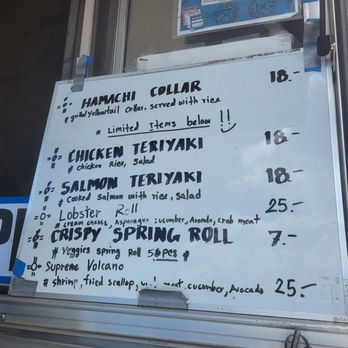 HAMACHI COLLAR 18.-
grilled Yellowtail Collar, served with rice
# Limited Items below !!
CHICKEN TERIYAKI 18-
# Chicken Rice, Salad
SALMON TERIYAKI 18-
# Cooked Salmon with rice, salad
Lobster Roll 25.-
# cream cheese, Asparagus, cucumber, Avocado, crab meat
CRISPY SPRING ROLL 7.-
# Veggies spring Roll 5 pcs #
Supreme Volcano
# shrimp, fried scallop, meat, cucumber, Avocado 25.-